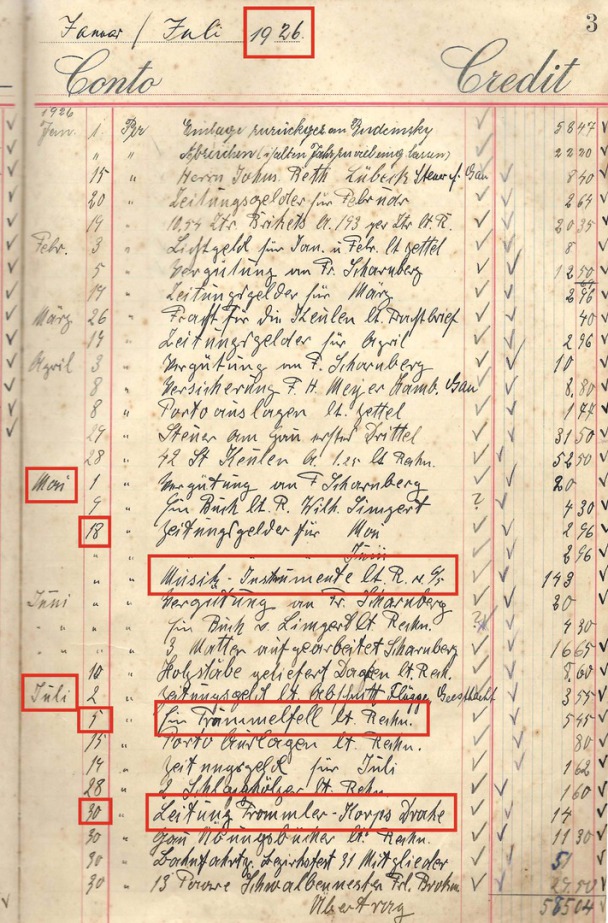 Januar / Juli 1926. 3
Conto Credit
1926
Jan. 1 Per Einlage zurückgez an Budemsky 5847
" " 2220
15 " Herrn Johs. Beth Lübeck Steuer f. Gau 840
20 " Zeitungsgelder für Februar 264
19 " 10,54 Ztr Brikets à 1.93 per Ztr lt. R. 2035
Febr. 3 " Lichtgeld für Jan. u Febr. lt Zettel 8
5 " Vergütung an Fr. Scharnberg 1250
14 " Zeitungsgelder für März 296
März 26 " Fracht für die Keulen lt. Frachtbrief 40
14 " Zeitungsgelder für April 296
April 3 " Vergütung an F. Scharnberg 10
8 " Versicherung F. H. Meyer Hamb. Gau 8.80
8 " Porto auslagen lt. Zettel 174
27 " Steuer am Gau erster Drittel 3150
28 " 42 St Keulen à 1.25 lt Rechn. 5250
Mai 1 " Vergütung an F Scharnberg 20
9 " Ein Buch lt. R. Wilh. Limpert ? 430
18 " Zeitungsgelder für Mai 296
" " " " Juni 296
" " Musik-Instrumente lt. R. 143
Juni " Vergütung an Fr. Scharnberg 20
" " " Ein Buch v. Limpert lt Rechn. ? 430
" " " 3 Matten aufgearbeitet Scharnberg 1665
10 " Holzstäbe geliefert lt. Rech. 5,60
Juli 2 " Zeitungsgeld lt. Abschnitt Flügge Geesthacht 355
5 " Ein Trommelfell lt. Rechn. 545
15 " Porto Auslagen lt. Rechn. 80
14 " Zeitungsgeld für Juli 162
28 " 2 Schlaghölzer lt. Rechn 160
30 " Leitung Trommler-Korps Drake 14
30 " Gau Übungsbücher lt. Rechn. 1130
30 " Bahnfahrtg. Bezirksfest 31 Mitglieder 51
30 " 13 Paare Schwalbennester Frl. Brohm
Übertrag 58504